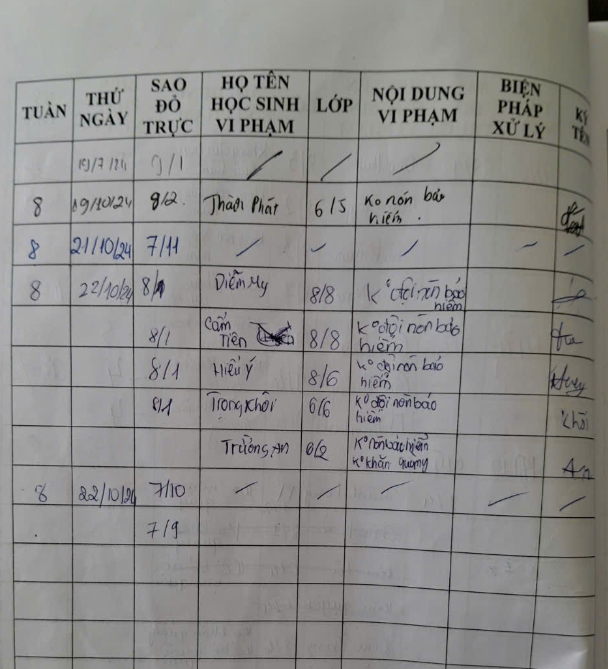 TUẦN THỨ NGÀY SAO ĐỎ TRỰC HỌ TÊN HỌC SINH VI PHẠM LỚP NỘI DUNG VI PHẠM BIỆN PHÁP XỬ LÝ KÝ TÊN
19/7/24 9/1 / / /
8 19/10/24 8/2 Thành Phát 6/5 Ko nón bảo hiểm.
8 21/10/24 7/11 / - / - /
8 22/10/24 8/1 Diễm My 8/8 K° đội nón bảo hiểm
8/1 Cẩm Tiên 8/8 K° đội nón bảo hiểm
8/1 Hiếu Ý 8/6 K° đội nón bảo hiểm Huy
8/1 Trọng Khôi 6/6 K° đội nón bảo hiểm Khôi
Trường An 6/2 K° nón bảo hiểm
K° khăn quàng An
8 22/10/24 7/10 - / - / /
7/9